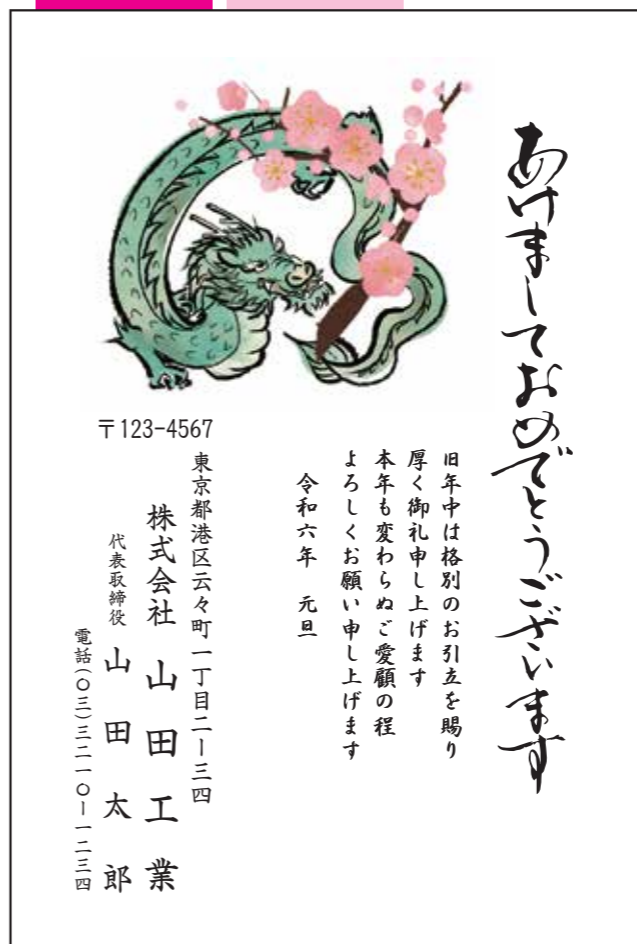 あけましておめでとうございます
旧年中は格別のお引立を賜り
厚く御礼申し上げます
本年も変わらぬご愛顧の程
よろしくお願い申し上げます
令和六年　元旦
〒123-4567
東京都港区云々町一丁目二ー三四
株式会社 山田工業
代表取締役 山田太郎
電話(〇三)三二一〇ー一二三四